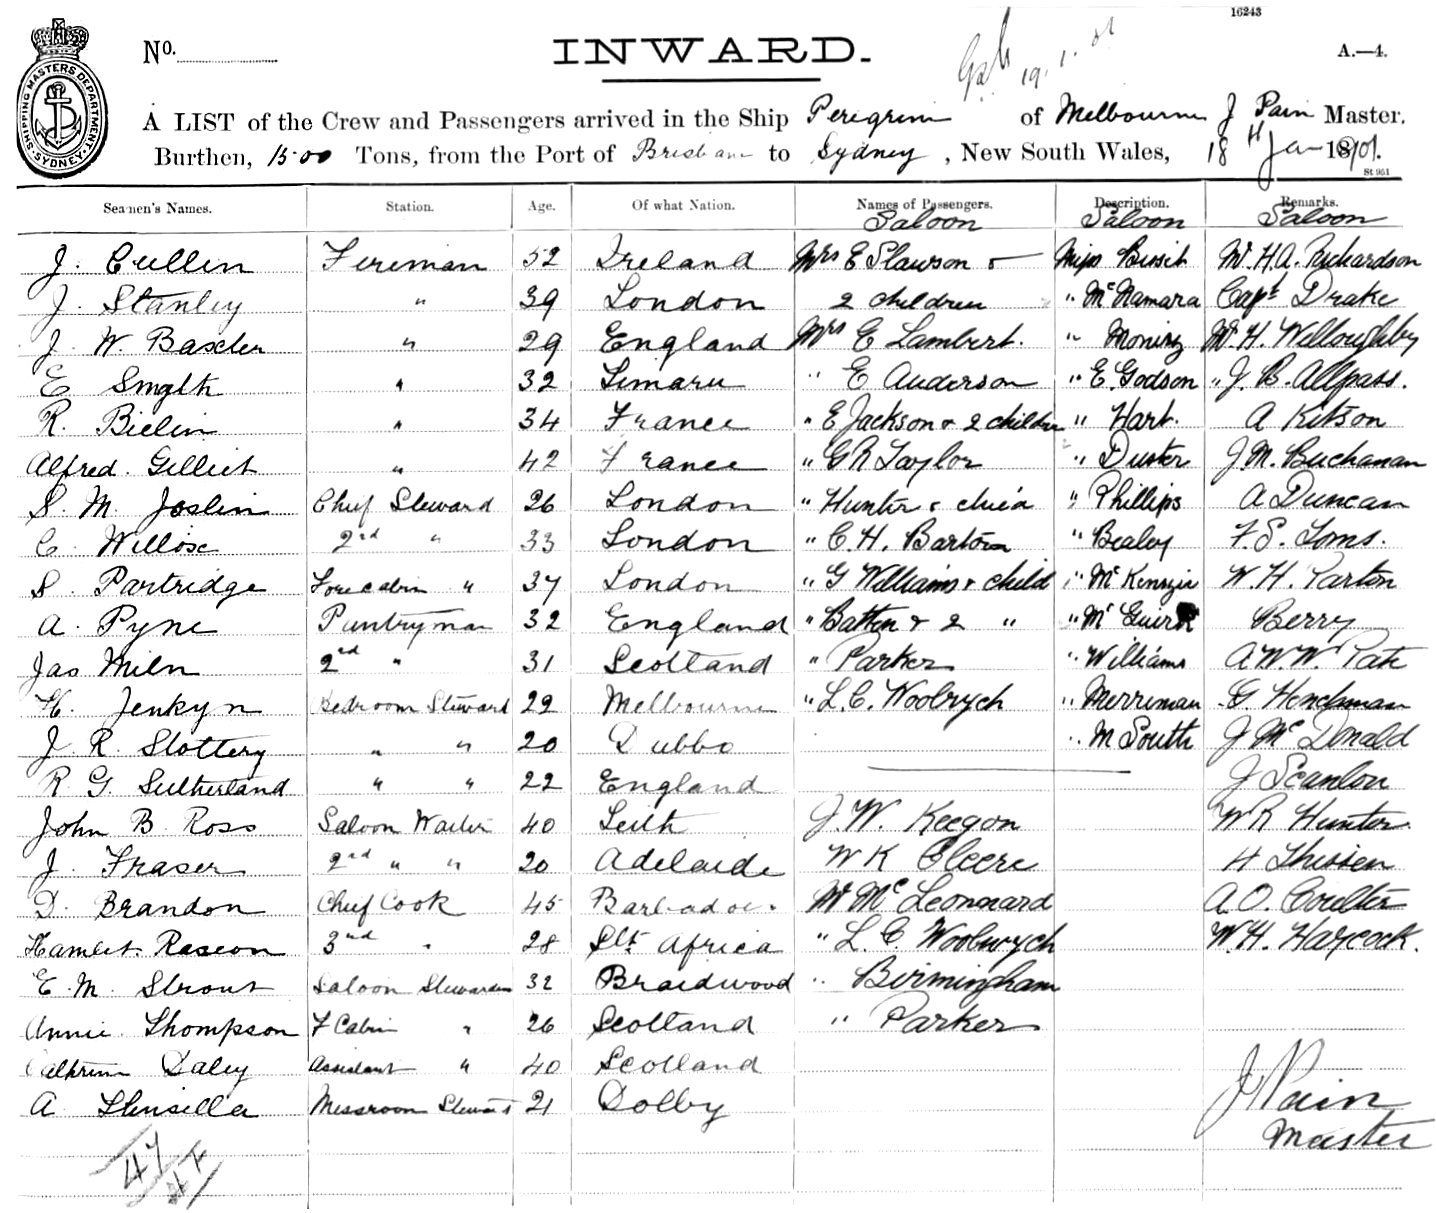 16243
No. INWARD. A.—4.
SHIPPING MASTERS DEPARTMENT. SYDNEY
19.1.01
A LIST of the Crew and Passengers arrived in the Ship Peregrine of Melbourne J Pain Master.
Burthen, 1500 Tons, from the Port of Brisbane to Sydney, New South Wales, 18th Jan 1901.
St 951
Seamen's Names. Station. Age. Of what Nation. Names of Passengers. Description. Remarks.
Saloon Saloon Saloon
J. Cullen Fireman 52 Ireland Mrs E Slawson & Miss Mr H.A. Richardson
J. Stanley " 39 London 2 children " McNamara Capt Drake
J. W. Baxter " 29 England Mrs E Lambert. " Mr H. Willoughby
E Smylk " 32 Timaru " E Anderson " E. Godson " J. B. Allpass.
R. Bielin " 34 France " E Jackson & 2 children " Hart. A Kitson
Alfred. Gilliet " 42 France " G R Taylor " Duster J M. Buchanan
S. M. Joslin Chief Steward 26 London " Hunter & child " Phillips A Duncan
C. Willox 2nd " 33 London " C. H. Barton " Bealey F. S. Toms.
S. Partridge Forecabin " 37 London " G Williams & child " McKenzie W. H. Parton
A. Pyne Pantryman 32 England " Batten & 2 " " McGuirk Berry
Jas Miln 2nd " 31 Scotland " Parker " Williams A W. W. Pate
H. Jenkyn Bedroom Steward 29 Melbourne " L. C. Woolrych " Merriman G. Henchman
J. R. Slottery " " 20 Dubbo " M South J McDonald
R. G. Sutherland " " 22 England J Scanlon
John B. Ross Saloon Waiter 40 Leith J. W. Keegon W R Hunter
J. Fraser 2nd " " 20 Adelaide W K Cleere H Thissen
D. Brandon Chief Cook 45 Barbadoes Mr McLeonnard A. O. Coulter
Hamlet. Rescon 3rd " 28 Sth Africa " L. C. Woolwych W. H. Haycock.
E. M. Strout Saloon Stewardess 32 Braidwood " Birmingham
Annie. Thompson F Cabin " 26 Scotland " Parker
Cathrine Daley Assistant " 40 Scotland
A Messroom Steward 21 Dolby
J Pain
Master
47